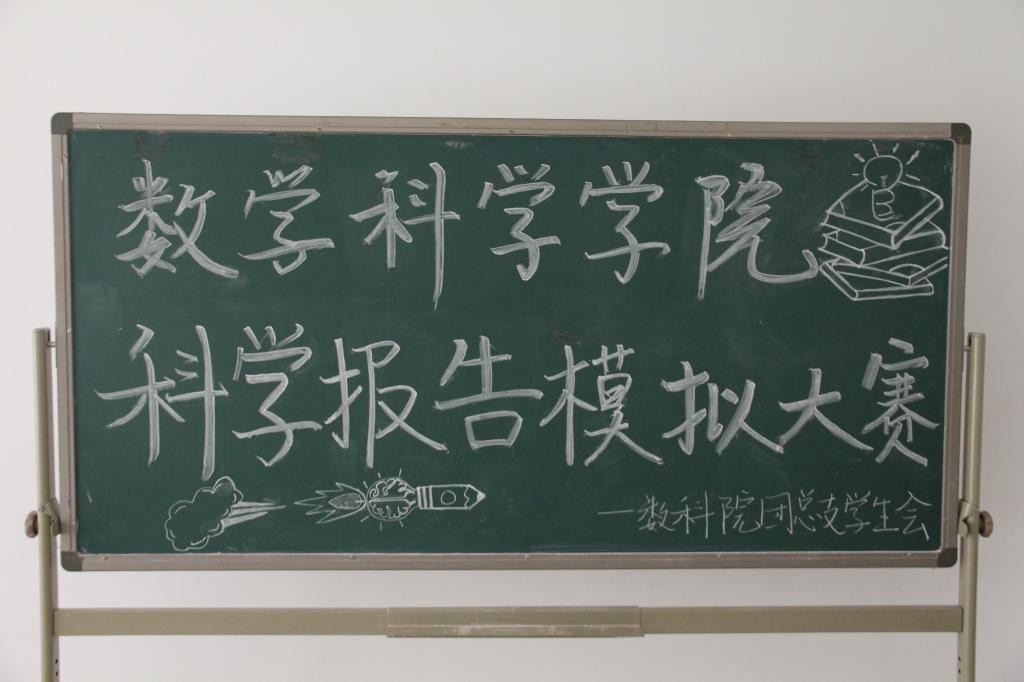 数学科学学院
科学报告模拟大赛
—数科院团总支学生会